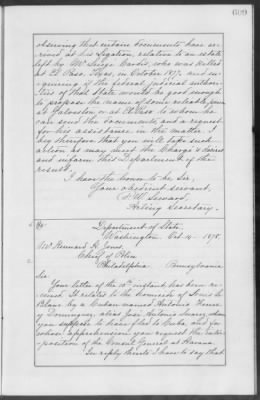 showing that certain documents have ar-
rived at his Legation, relative to an estate
left by Mr Luigi Cardis, who was killed
at El Paso, Texas, in October 1877, and in-
quiring if the federal judicial author-
ities of that State would be good enough
to propose the name of some reliable person
at Galveston or at El Paso to whom he
can send the documents, and a request
for his assistance in the matter. I
beg therefore that you will take such
action as may meet the Chargé's desires
and inform this Department of the
result.
I have the honor to be, Sir,
Your obedient servant,
F. W. Seward,
Acting Secretary.
Department of State,
Washington, Oct. 14 1878.
Mr Kennard H. Jones,
Chief of Police
Philadelphia Pennsylvania
Sir
Your letter of the 10th instant, has been re-
ceived. It relates to the homicide of
Blanc by a Cuban named Antonio
y Dominguez, alias José Antonio Suarez, whom
you suppose to have fled to Cuba, and for
whose apprehension you request the inter-
position of the Consul General at Havana.
In reply thereto I have to say that